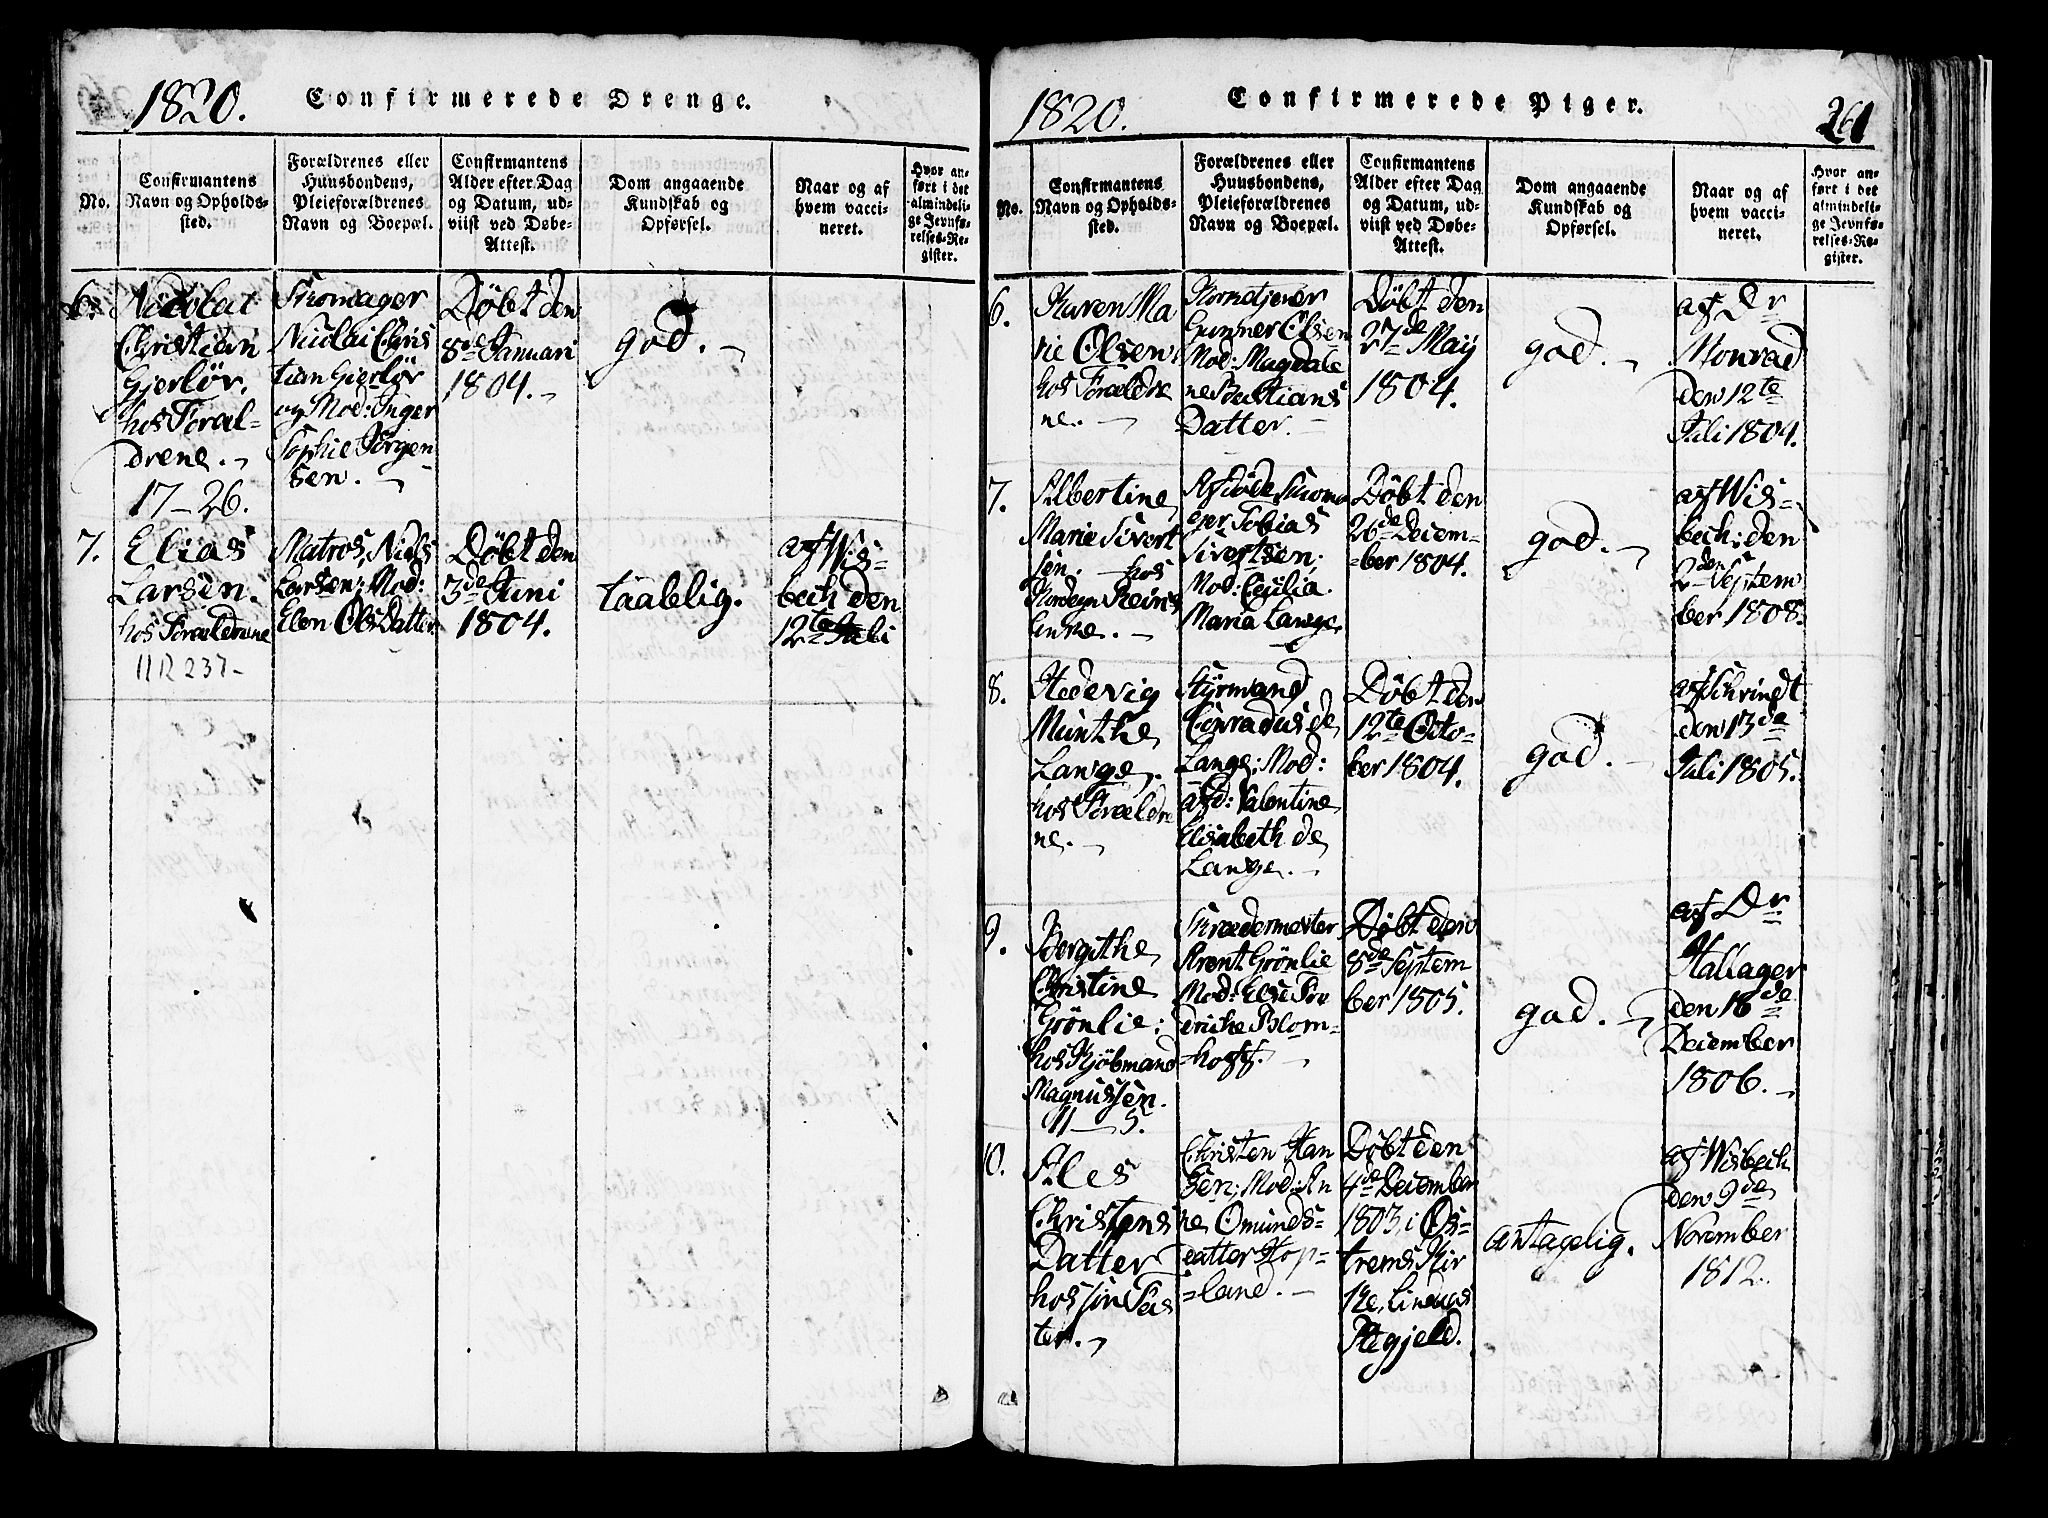 1820. Confirmerede Drenge.
No.
Confirmantens
Navn og Opholds-
sted.
Forældrenes eller
Huusbondens,
Pleieforældrenes
Navn og Boepæl.
Confirmantens
Alder efter Dag
og Datum, ud-
viist ved Døbe-
Attest.
Dom angaaende
Kundskab og
Opførsel.
Naar og af
hvem vacci-
neret.
Hvor an-
ført i det
almindeli-
ge Jevnfø-
relses-Re-
gister.
6.
Nicolai
Christian
Gjerløv.
hos Foræl-
drene.
17-26.
Skomager
Nicolai Chris
tian Gierløv
og Mod: Inger
Sophie Jørgen
sen.
Døbt den
8de Januari
1804.
god.
7.
Elias
Larsen.
hos Forældrene
237-
Matros, Niels
Larsen; Mod:
Elen Ols Datter
Døbt den
3de Juni
1804.
taalelig.
af Wis-
bech den
12te Juli
1820. Confirmerede Piger. 261
No.
Confirmantens
Navn og Opholds-
sted.
Forældrenes eller
Huusbondens,
Pleieforældrenes
Navn og Boepæl.
Confirmantens
Alder efter Dag
og Datum, ud-
viist ved Døbe-
Attest.
Dom angaaende
Kundskab og
Opførsel.
Naar og af
hvem vacci-
neret.
Hvor an-
ført i det
almindeli-
ge Jevnfø-
relses-Re-
gister.
6.
Karen Ma
rie Olsen
hos Forældre
ne.
Gunner Olsen
Mod: Magdale
ne Bastians
Datter.
Døbt den
27de Maij
1804.
god.
af Dr
Monrad
den 12te
Juli 1804.
7.
Albertine
Marie Sivert
sen. hos
Klokker
Afdøde Skoma
ger Tobias
Sivertsen;
Mod: Cecilia
Maria Lange.
Døbt den
26de Decem-
ber 1804.
god.
af Wis-
bech; den
2den Septem
ber 1808.
8.
Hedevig
Munthe
Lange.
hos Forældre
ne.
Styrmand
Conradus de
Lange; Mod:
afd: Valentine
Elisabeth de
Lange.
Døbt den
12te Octo-
ber 1804.
god.
af Schvindt
den 13de
Juli 1805.
9.
Bergithe
Christine
Grönlie:
hos Kjöbmand
Magnussen.
11-5.
Skrædermester
Arent Grönlie
Mod: Else Fre
driche Blom-
-hoff.
Døbt den
8de Septem
ber 1805.
god.
af Dr
Hallager
den 18de
December
1806.
10.
Ales
Christens
Datter
hos sin Søs
ter.
Christen Han
sen; Mod: An
ne Omunds-
datter Hop-
-land.
Døbt den
4de December
1803, i Øs-
trems Kir
ke, Lindaas
Pregjeld.
antagelig.
af Wisbech
den 9de
November
1812.